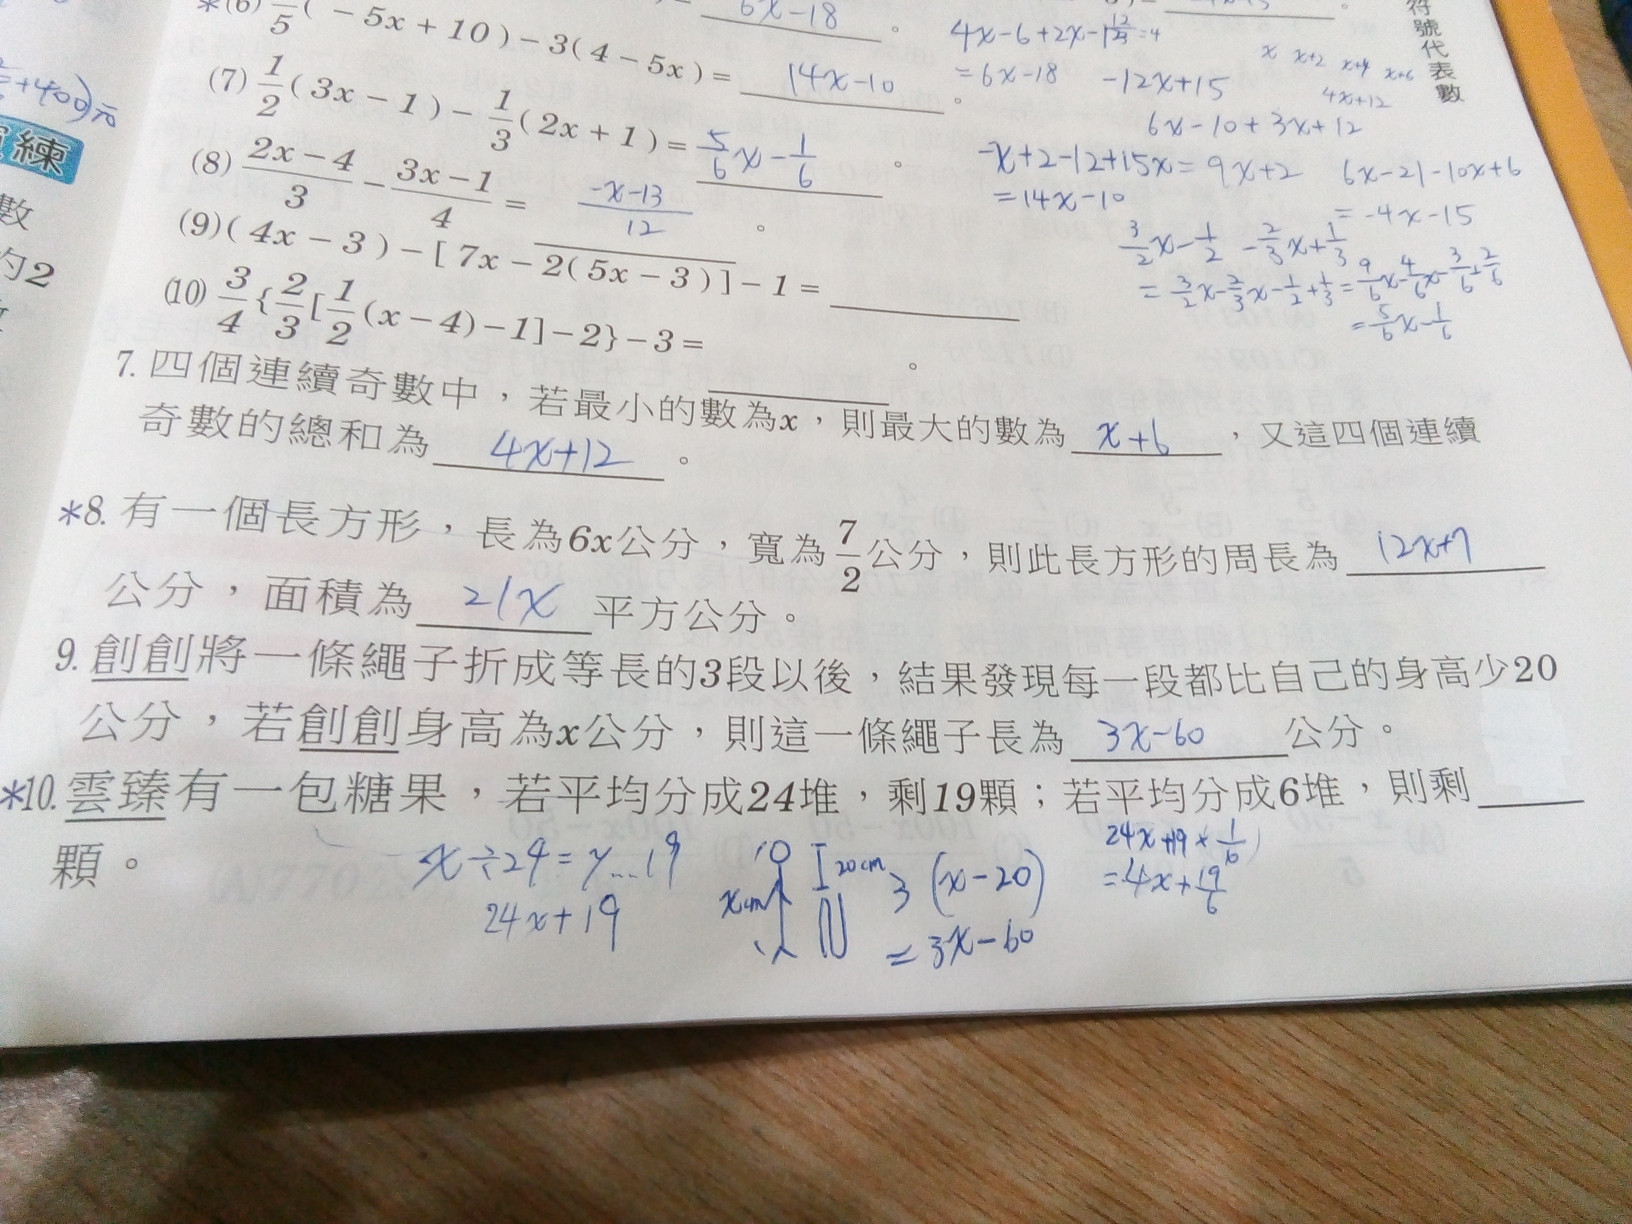 *(6) 1/5(-5x+10)-3(4-5x)= 14x-10。
6x-18。
(7) 1/2(3x-1)-1/3(2x+1)= 5/6x-1/6。
(8) (2x-4)/3-(3x-1)/4= (-x-13)/12。
(9)(4x-3)-[7x-2(5x-3)]-1=
(10) 3/4{2/3[1/2(x-4)-1]-2}-3=。
7.四個連續奇數中，若最小的數為x，則最大的數為 x+6，又這四個連續
奇數的總和為 4x+12。
*8.有一個長方形，長為6x公分，寬為7/2公分，則此長方形的周長為 12x+7
公分，面積為 21x 平方公分。
9.創創將一條繩子折成等長的3段以後，結果發現每一段都比自己的身高少20
公分，若創創身高為x公分，則這一條繩子長為 3x-60 公分。
*10.雲臻有一包糖果，若平均分成24堆，剩19顆；若平均分成6堆，則剩
顆。
x÷24=y...19
24x+19
xcm
20cm
3(x-20)
=3x-60
24x+19×1/6
=4x+19/6
4x-6+2x-12
=6x-18
-12x+15
x x+2 x+4 x+6
4x+12
6x-10+3x+12
=9x+2
-x+2-12+15x
=14x-10
6x-21-10x+6
=-4x-15
3/2x-1/2-2/3x+1/3
=3/2x-2/3x-1/2+1/3=9/6x-4/6x-3/6+2/6
=5/6x-1/6
符號代表數
+400)元
練
數
的2